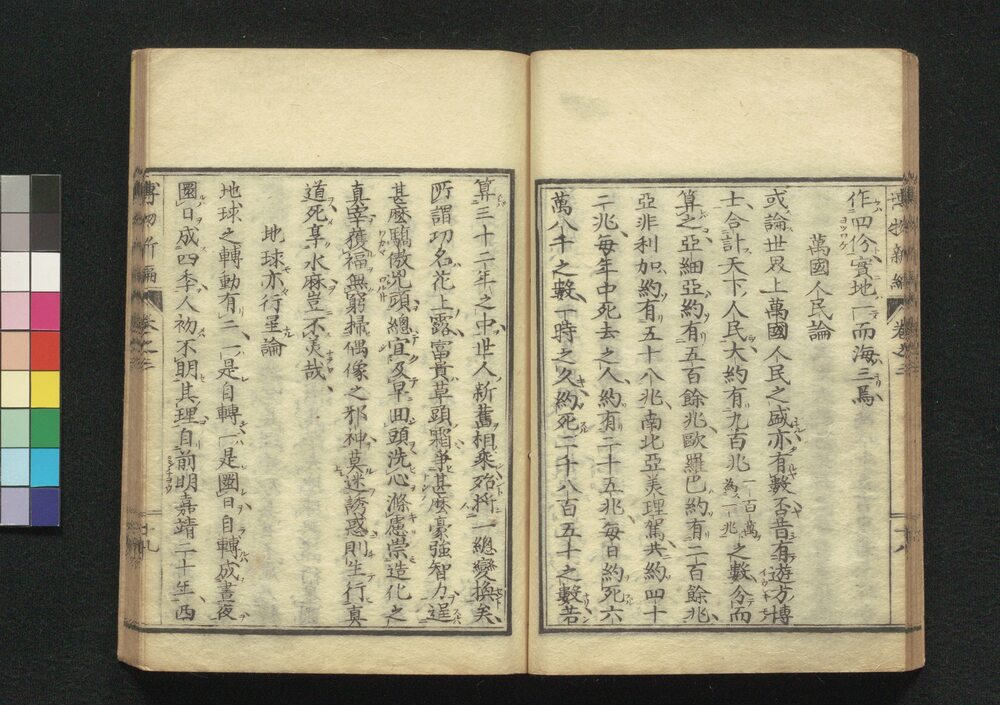 作四份實地一而海三焉
萬國人民論
或論世界上萬國人民之盛亦有數否昔有遊方博
士合計天下人民大約有九百兆一百萬為一兆之數分而
算之亞細亞約有五百餘兆歐羅巴約有二百餘兆
亞非利加約有五十八兆南北亞美理駕共約四十
二兆每年中死去之人約有二十五兆每日約死六
萬八千之數一時之久約死二千八百五十之數若
十八
算三十二年之中世人新舊相乘殆將一總變換矣
所謂功名花上露富貴草頭霜爭甚麼豪強智力逞
甚麼驕傲兇頭總宜及早回頭洗心滌慮崇造化之
真宰獲福無窮掃偶像之邪神莫迷誘惑則生行真
道死享水麻豈不美哉
地球亦行星論
地球之轉動有二一是自轉一是圜日自轉成晝夜
圜日成四季人初不明其理自前明嘉靖二十年西
博物新編 卷之二
十九